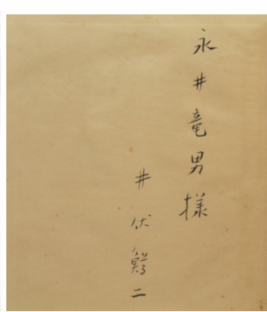 永井竜男様
井伏鱒二